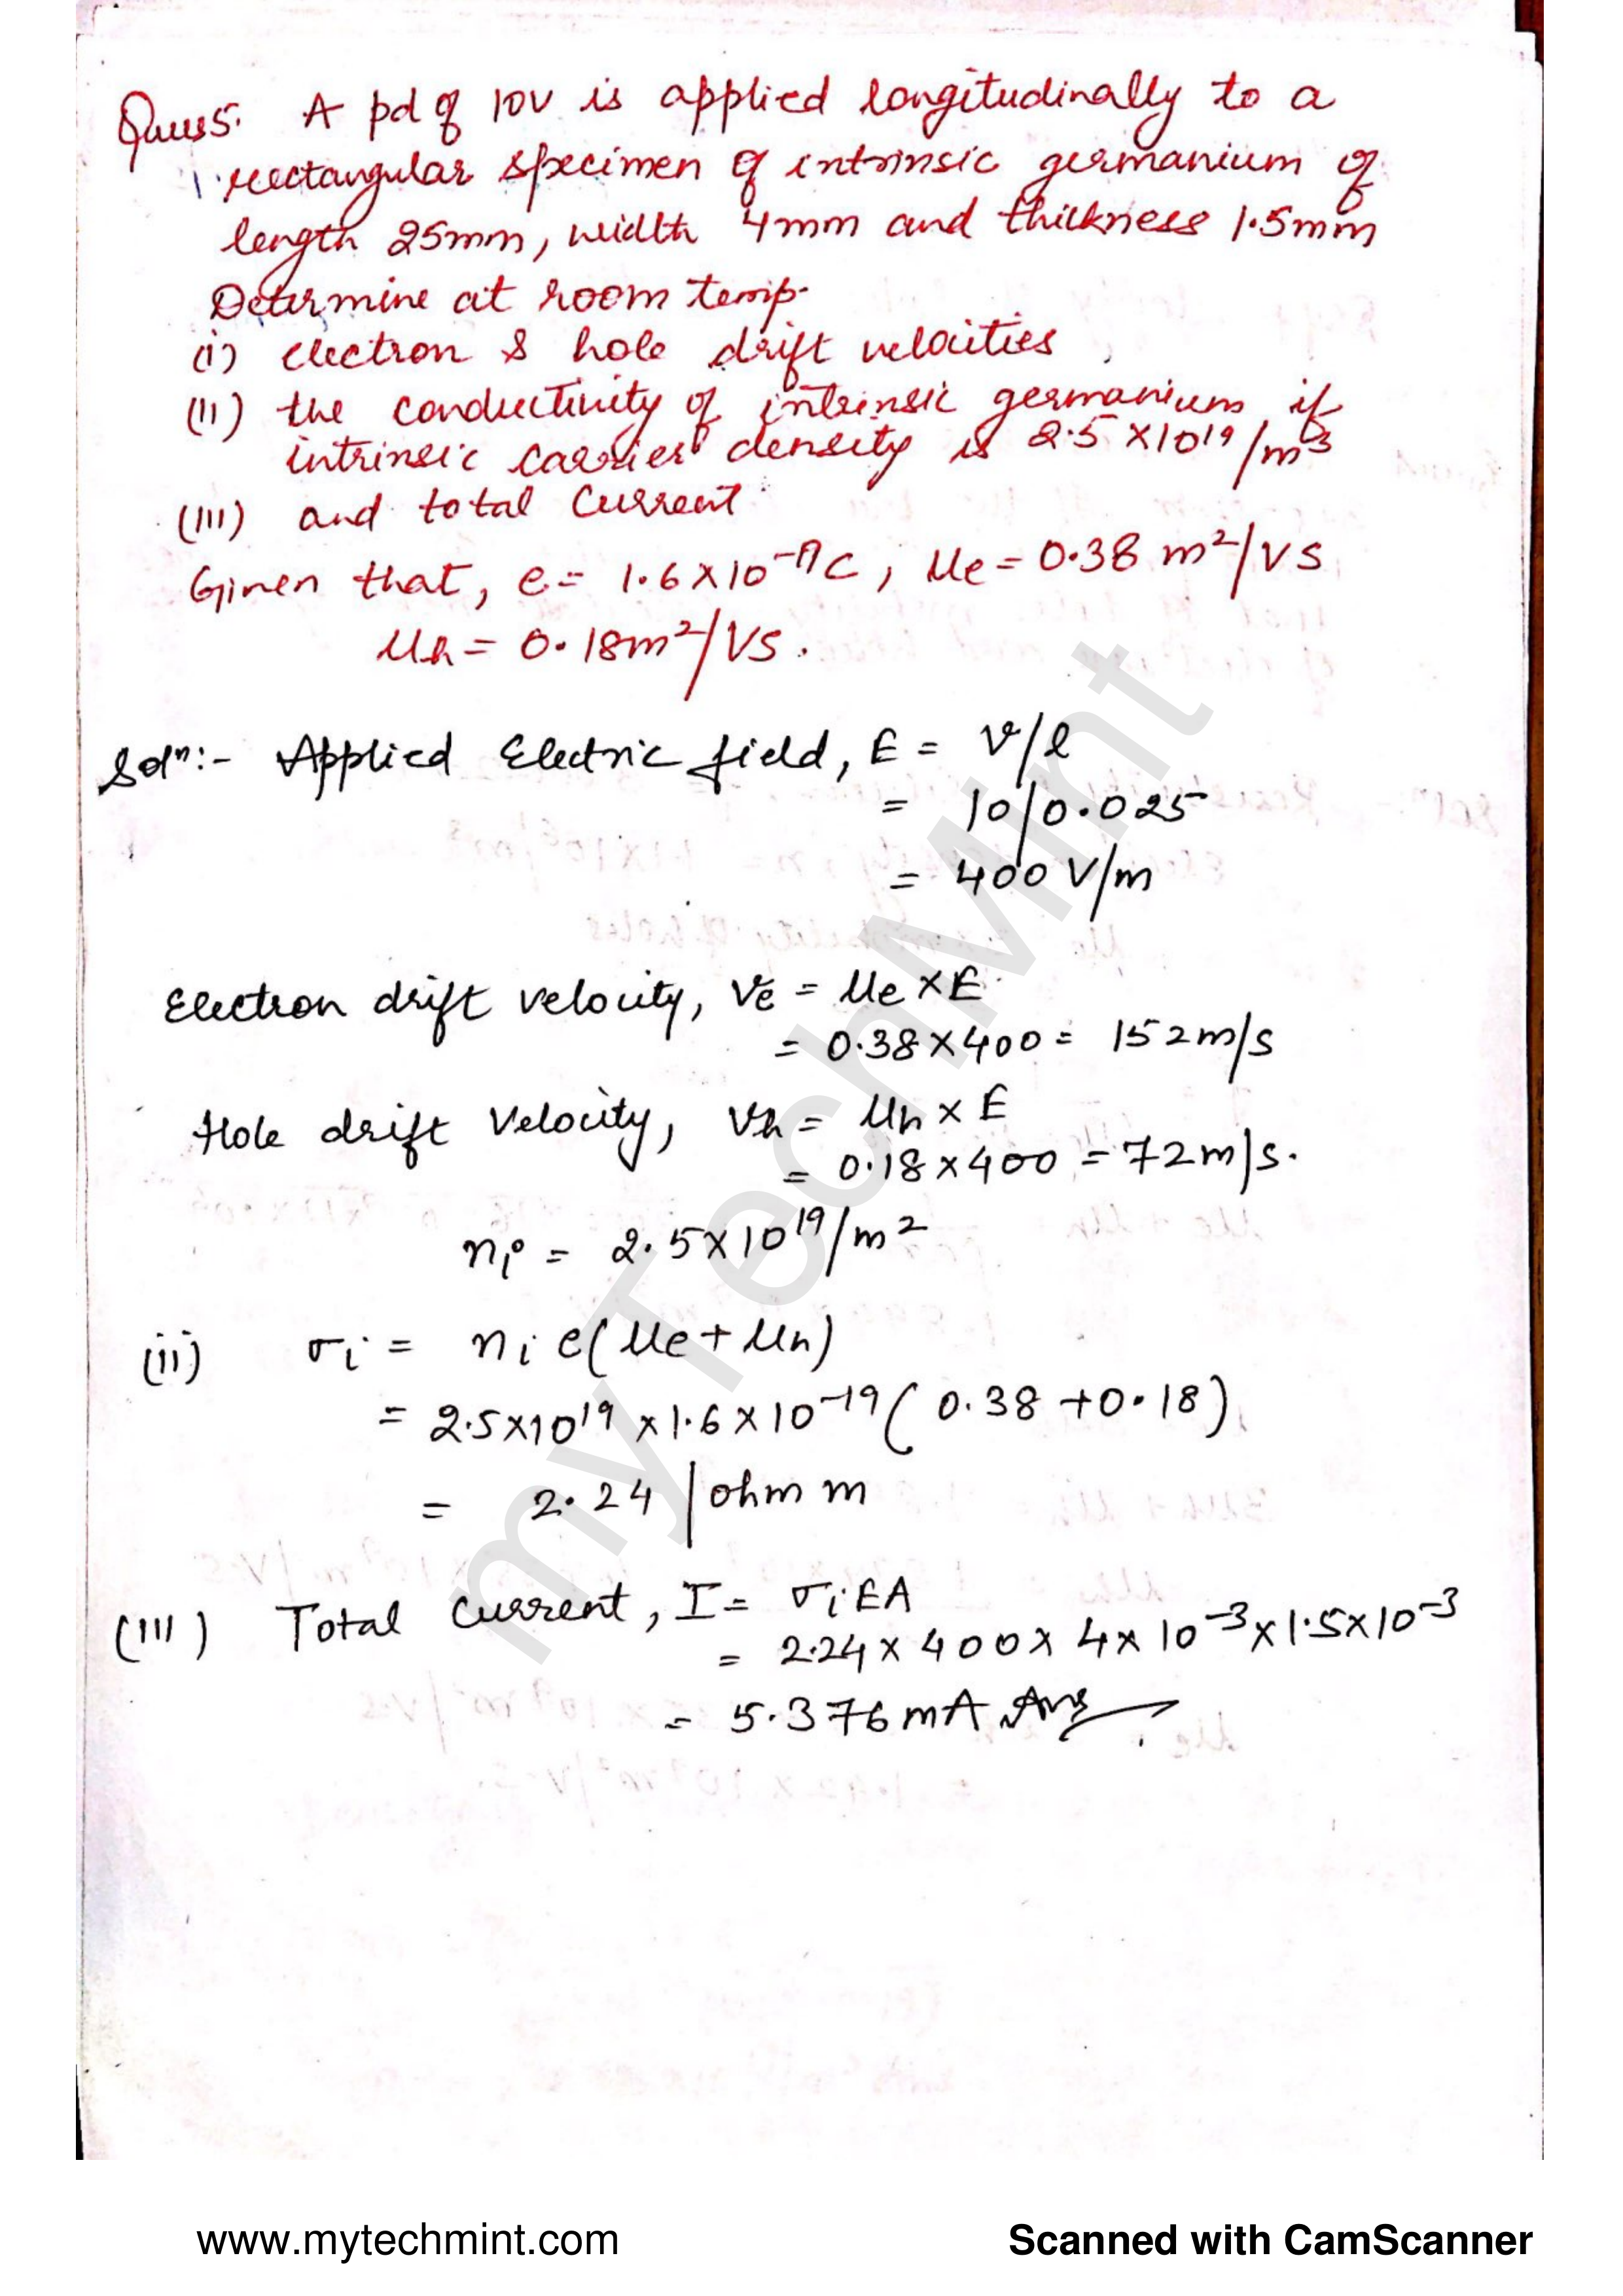 Ques5. A pd of 10V is applied longitudinally to a
rectangular specimen of intrinsic germanium of
length 25mm, width 4mm and thickness 1.5mm
Determine at room temp.
(i) electron & hole drift velocities
(ii) the conductivity of intrinsic germanium if
intrinsic carrier density is 2.5 × 10¹⁹/m³
(iii) and total Current
Given that, e = 1.6 × 10⁻¹⁹C, μe = 0.38 m²/VS
μh = 0.18m²/VS.
Solⁿ:- Applied Electric field, E = V/l
= 10/0.025
= 400 V/m
Electron drift velocity, Ve = μe × E
= 0.38 × 400 = 152m/s
Hole drift Velocity, Vh = μh × E
= 0.18 × 400 = 72m/s.
ni = 2.5 × 10¹⁹/m²
(ii) σi = ni e(μe + μh)
= 2.5×10¹⁹ × 1.6 × 10⁻¹⁹ (0.38 + 0.18)
= 2.24 / ohm m
(iii) Total Current, I = σiEA
= 2.24 × 400 × 4 × 10⁻³ × 1.5 × 10⁻³
= 5.376 mA Ans
myTechMint
www.mytechmint.com
Scanned with CamScanner